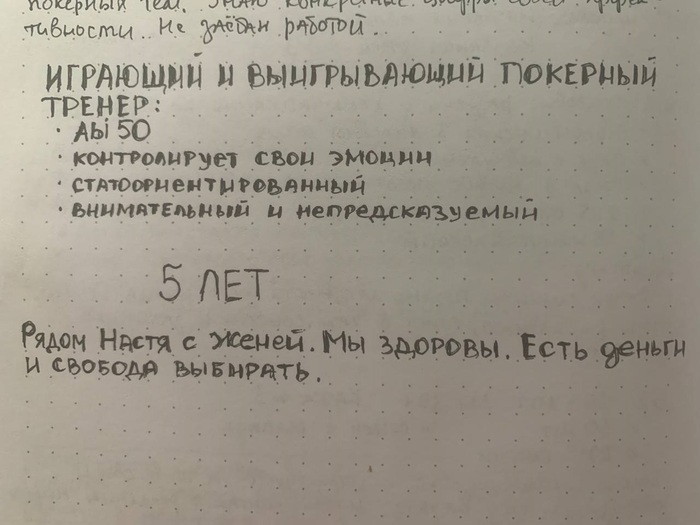 покерный чел. Знаю конкретные цифры своей эффек-
тивности. Не заёбан работой.
ИГРАЮЩИЙ И ВЫИГРЫВАЮЩИЙ ПОКЕРНЫЙ
ТРЕНЕР:
· ABI 50
· КОНТРОЛИРУЕТ СВОИ ЭМОЦИИ
· СТАТООРИЕНТИРОВАННЫЙ
· ВНИМАТЕЛЬНЫЙ И НЕПРЕДСКАЗУЕМЫЙ
5 ЛЕТ
РЯДОМ НАСТЯ С ЖЕНЕЙ. МЫ ЗДОРОВЫ. ЕСТЬ ДЕНЬГИ
И СВОБОДА ВЫБИРАТЬ.